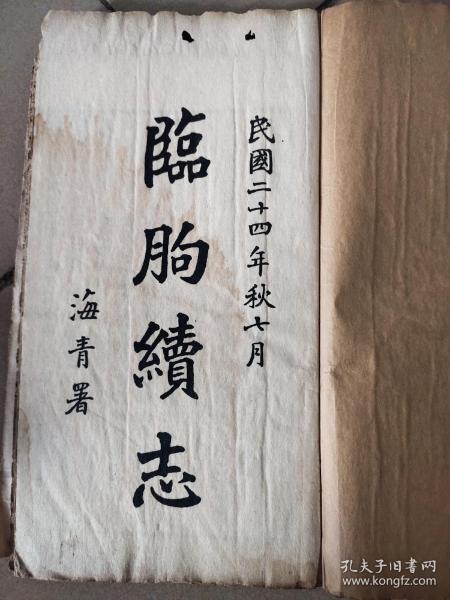 民國二十四年秋七月
臨朐續志
海青署
孔夫子旧书网
www.kongfz.com